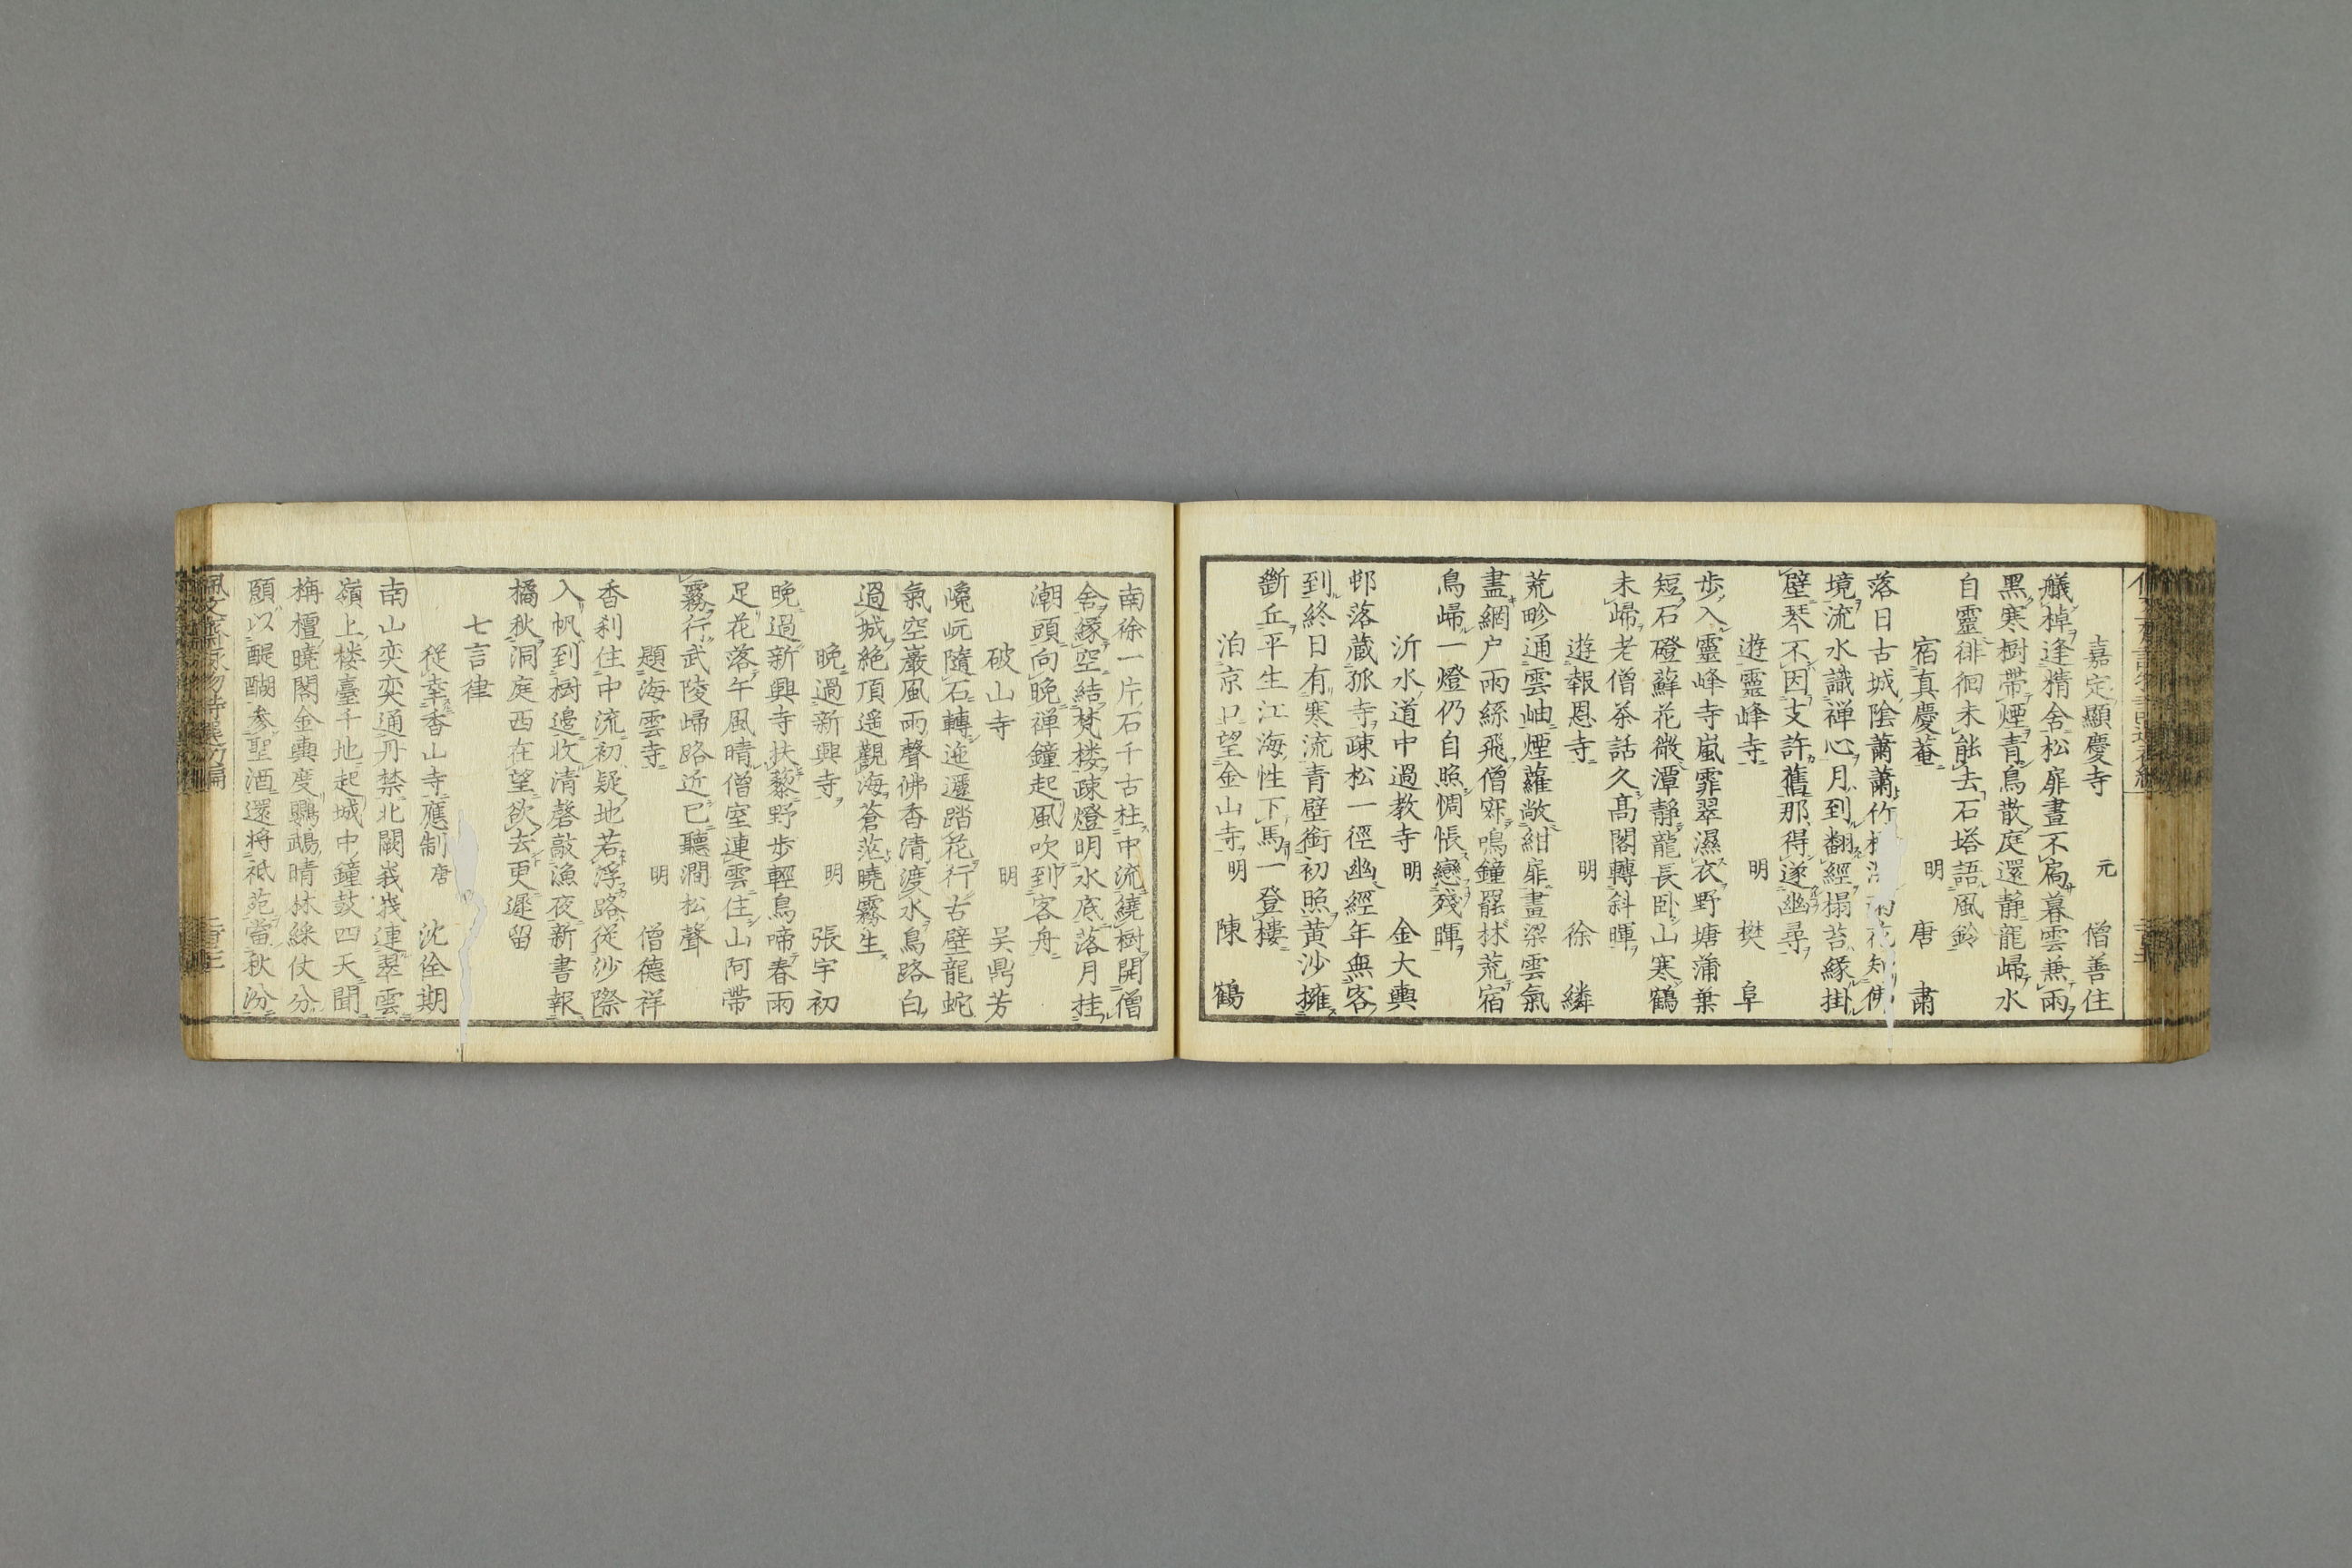 嘉定顯慶寺　元　僧善住
艤棹逢精舎松扉晝不扃暮雲兼雨
黒寒樹帶煙青鳥散庭還静龍歸水
自靈徘徊未能去石塔語風鈴
宿真慶菴　明　唐肅
落日古城陰蕭蕭竹花知佛
境流水識禅心月到翻經榻苔縁掛
壁琴不因支許舊那得遂幽尋
遊靈峰寺　明　樊阜
歩入靈峰寺嵐霏翠濕衣野塘蒲葉
短石磴蘚花微潭静龍長卧山寒鶴
未歸老僧茶話久髙閣轉斜暉
遊報恩寺　明　徐繗
荒畛通雲岫煙蘿敞紺扉晝梁雲氣
盡網户雨絲飛僧寂鳴鐘罷林荒宿
鳥歸一燈仍自照惆悵戀殘暉
沂水道中過教寺　明　金大輿
邨落藏孤寺疎松一徑幽經年無客
到終日有寒流青壁銜初照黄沙擁
斷丘平生江海性下馬一登樓
泊京口望金山寺　明　陳鶴
南徐一片石千古柱中流繞樹開僧
舎縁空結梵楼疎燈明水底落月挂
潮頭向晩禅鐘起風吹到客舟
破山寺　明　吴鼎芳
巉岏隨石轉迤邐踏花行古壁龍蛇
氣空巖風雨聲佛香清渡水鳥路白
過城絶頂遥觀海蒼茫曉霧生
晩過新興寺　明　張宇初
晩過新興寺扶藜野歩輕鳥啼春雨
足花落午風晴僧室連雲住山阿帶
霧行武陵歸路近已聽澗松聲
題海雲寺　明　僧德祥
香刹住中流初疑地若浮路從沙際
入帆到樹邊收清磬敲漁夜新書報
橘秋洞庭西在望欲去更遲留
七言律
從幸香山寺應制　唐　沈佺期
南山奕奕通丹禁北闕峩峩連翠雲
嶺上楼臺千地起城中鐘鼓四天聞
栴檀曉閣金輿度鸚鵡晴林綵仗分
願以醍醐参聖酒還将祇苑當秋汾